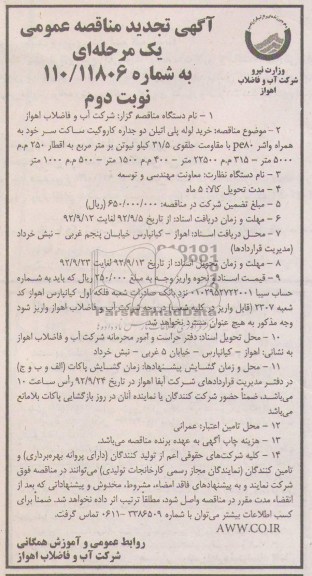 آگهی تجدید مناقصه عمومی
یک مرحله‌ای
به شماره ۱۱۰/۱۱۸۰۶
نوبت دوم
وزارت نیرو
شرکت آب و فاضلاب
اهواز
۱ – نام دستگاه مناقصه گزار: شرکت آب و فاضلاب اهواز
۲ – موضوع مناقصه: خرید لوله پلی اتیلن دو جداره کاروگیت ساکت سر خود به
همراه واشر pe۸۰ با مقاومت حلقوی ۳۱/۵ کیلو نیوتن بر متر مربع به اقطار ۲۵۰ م.م
۵۰۰۰ متر – ۳۱۵ م.م ۲۲۵۰۰ متر – ۴۰۰ م.م ۱۵۰۰ متر – ۵۰۰ م.م ۱۰۰۰ متر
۳ – نام دستگاه نظارت: معاونت مهندسی و توسعه
۴ – مدت تحویل کالا: ۵ ماه
۵ – مبلغ تضمین شرکت در مناقصه: ۶۵۰/۰۰۰/۰۰۰ (ریال)
۶ – مهلت و زمان دریافت اسناد: از تاریخ ۹۲/۹/۵ لغایت ۹۲/۹/۱۲
۷ – محل دریافت اسناد: اهواز – کیانپارس خیابان پنجم غربی – نبش خرداد
(مدیریت قراردادها)
۸ – مهلت و زمان تحویل اسناد: از تاریخ ۹۲/۹/۱۳ لغایت ۹۲/۹/۲۳
۹ – قیمت اسناد و نحوه واریز وجه به مبلغ ۲۵۰/۰۰۰ ریال که باید به شماره
حساب سیبا نزد بانک صادرات شعبه فلکه اول کیانپارس اهواز کد
شعبه ۲۳۰۷ (قابل واریز در کلیه شعب) در وجه شرکت آب و فاضلاب اهواز واریز شود
وجه مذکور به هیچ عنوان مسترد نخواهد شد.
۱۰ – محل تحویل اسناد: دفتر حراست و امور محرمانه شرکت آب و فاضلاب اهواز
به نشانی: اهواز – کیانپارس – خیابان ۵ غربی – نبش خرداد
۱۱ – محل و زمان گشایش پیشنهادها: زمان گشایش پاکات (الف و ب و ج)
در دفتر مدیریت قراردادهای شرکت آبفا اهواز در تاریخ ۹۲/۹/۲۴ رأس ساعت ۱۰
می‌باشد، ضمناً حضور شرکت کنندگان یا نماینده آنان در روز بازگشایی پاکات بلامانع
می‌باشد
۱۲ – محل تامین اعتبار: عمرانی
۱۳ – هزینه چاپ آگهی به عهده برنده مناقصه می‌باشد.
۱۴ – کلیه شرکت‌های حقوقی اعم از تولید کنندگان (دارای پروانه بهره‌برداری) و
تامین کنندگان (نمایندگان مجاز رسمی کارخانجات تولیدی) می‌توانند در مناقصه فوق
شرکت نمایند و به پیشنهادهای فاقد امضاء، مشروط، مخدوش و پیشنهاداتی که بعد از
انقضاء مدت مقرر در مناقصه واصل شود، مطلقاً ترتیب اثر داده نخواهد شد. ضمناً برای
کسب اطلاعات بیشتر می‌توان با شماره ۳۳۸۶۵۰۹ –۰۶۱۱ تماس گرفت.
AWW.CO.IR
روابط عمومی و آموزش همگانی
شرکت آب و فاضلاب اهواز